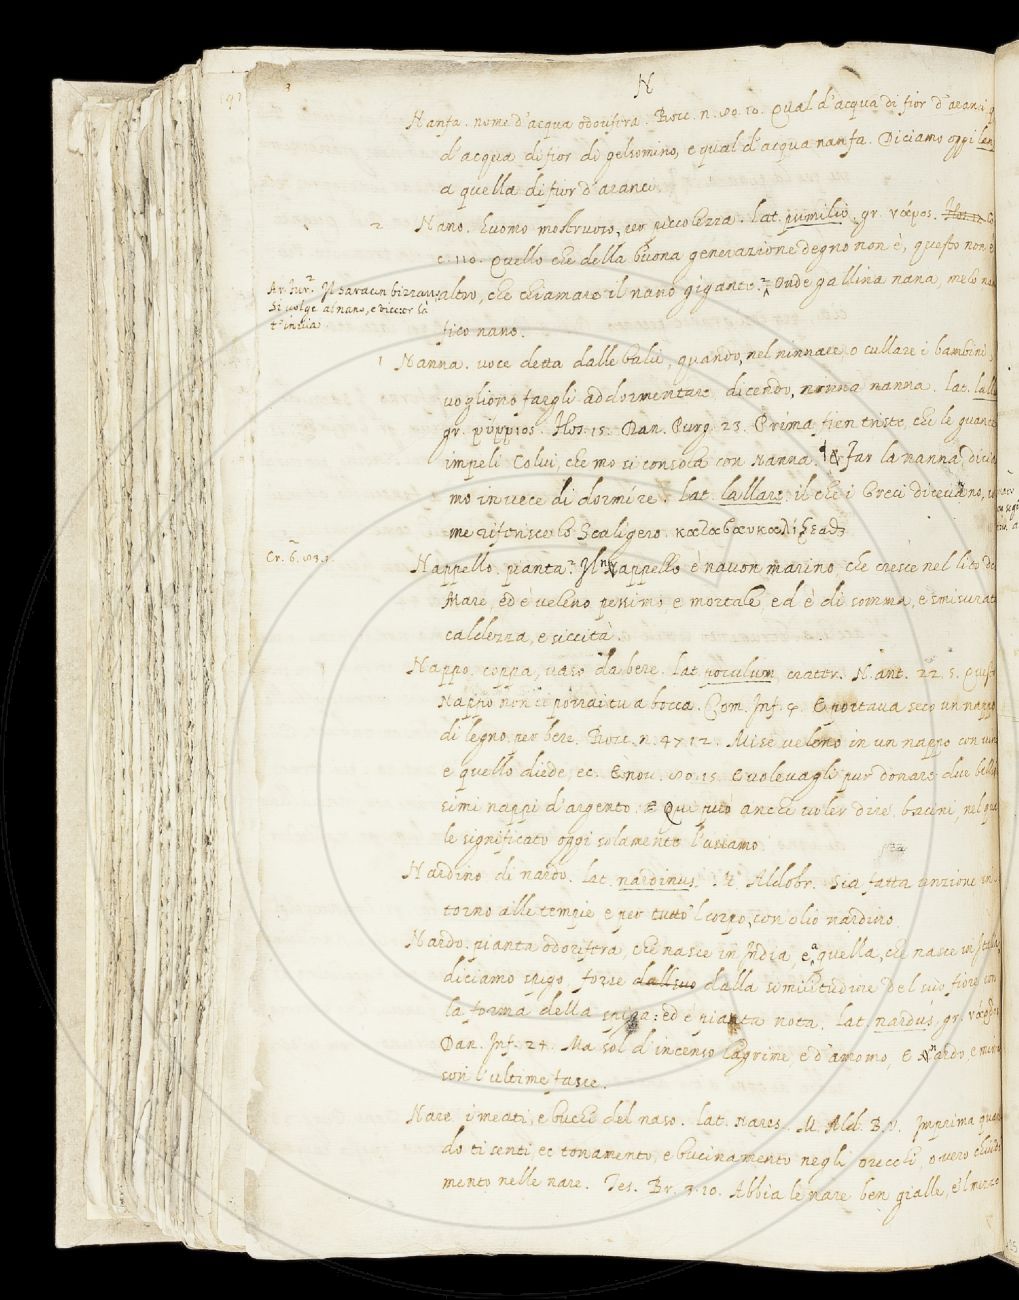 N
Nanfa. nome d'acqua odorifera. Bocc. n. 80. 10. Qual d'acqua di fior d'aranci
d'acqua di fior di gelsomino, e qual d'acqua nanfa. Diciamo oggi
a quella di fior d'aranci.
2 Nano. huomo mostruoso, per piccolezza. lat. pumilio, gr. νάνος.
c. 110. Quello che della buona generazione degno non è, questo non è
altro, che chiamare il nano gigante. Onde gallina nana, melo nano
fico nano.
1 Nanna. voce detta dalle balie, quando, nel ninnare, o cullare i bambini,
vogliono fargli addormentare, dicendo, nanna nanna. Lat.
gr. Dan. Purg. 23. Prima fien triste, che le guance
impeli Colui, che mo si consola con Nanna. Far la nanna, dicia
mo in vece di dormire. Lat. lallare. il che i Greci diceuano,
me riferisce lo Scaligero.
Nappello. pianta. Il nappello è nauon marino, che cresce nel lito del
Mare, ed è veleno pessimo e mortale, ed è di somma, e smisurata
caldezza, e siccità.
Nappo. coppa, vaso da bere. lat. poculum, crater. N. ant. 22. 5.
Nappo non ti porrai tu a bocca. Com. Inf. E portaua seco un nappo
di legno per bere. Bocc. n. Mise veleno in un nappo con
e quello diede, ec. E nou. 80. 15. E volevagli pur donare due
simi nappi d'argento. Qui può anche voler dire, bacini, nel qua
le significato oggi solamente l'usiamo.
Nardino di nardo. lat. nardinus. M. Aldobr. Sia fatta unzione in
torno alle tempie e per tutto 'l corpo, con olio nardino.
Nardo. pianta odorifera, che nasce in India, e a quella, che nasce in
diciamo spigo, forse dall suo dalla similitudine del suo fiore con
la forma della spiga: ed è pianta nota. lat. nardus, gr.
Dan. Inf. 24. Ma sol d'incenso lagrime, e d'amomo, E nardo, e mirra
son l'ultime fasce.
Nare i meati, e buchi del naso. lat. nares. M. Ald. B. V. Imprima quan
do ti senti, ec tonamento, e bucinamento negli orecchi, o uero
mento nelle nare. Tes. Br. Abbia le nare ben gialle,
Il saracin bizzarro
Si volge al nano, e dicer
Cr. 6.